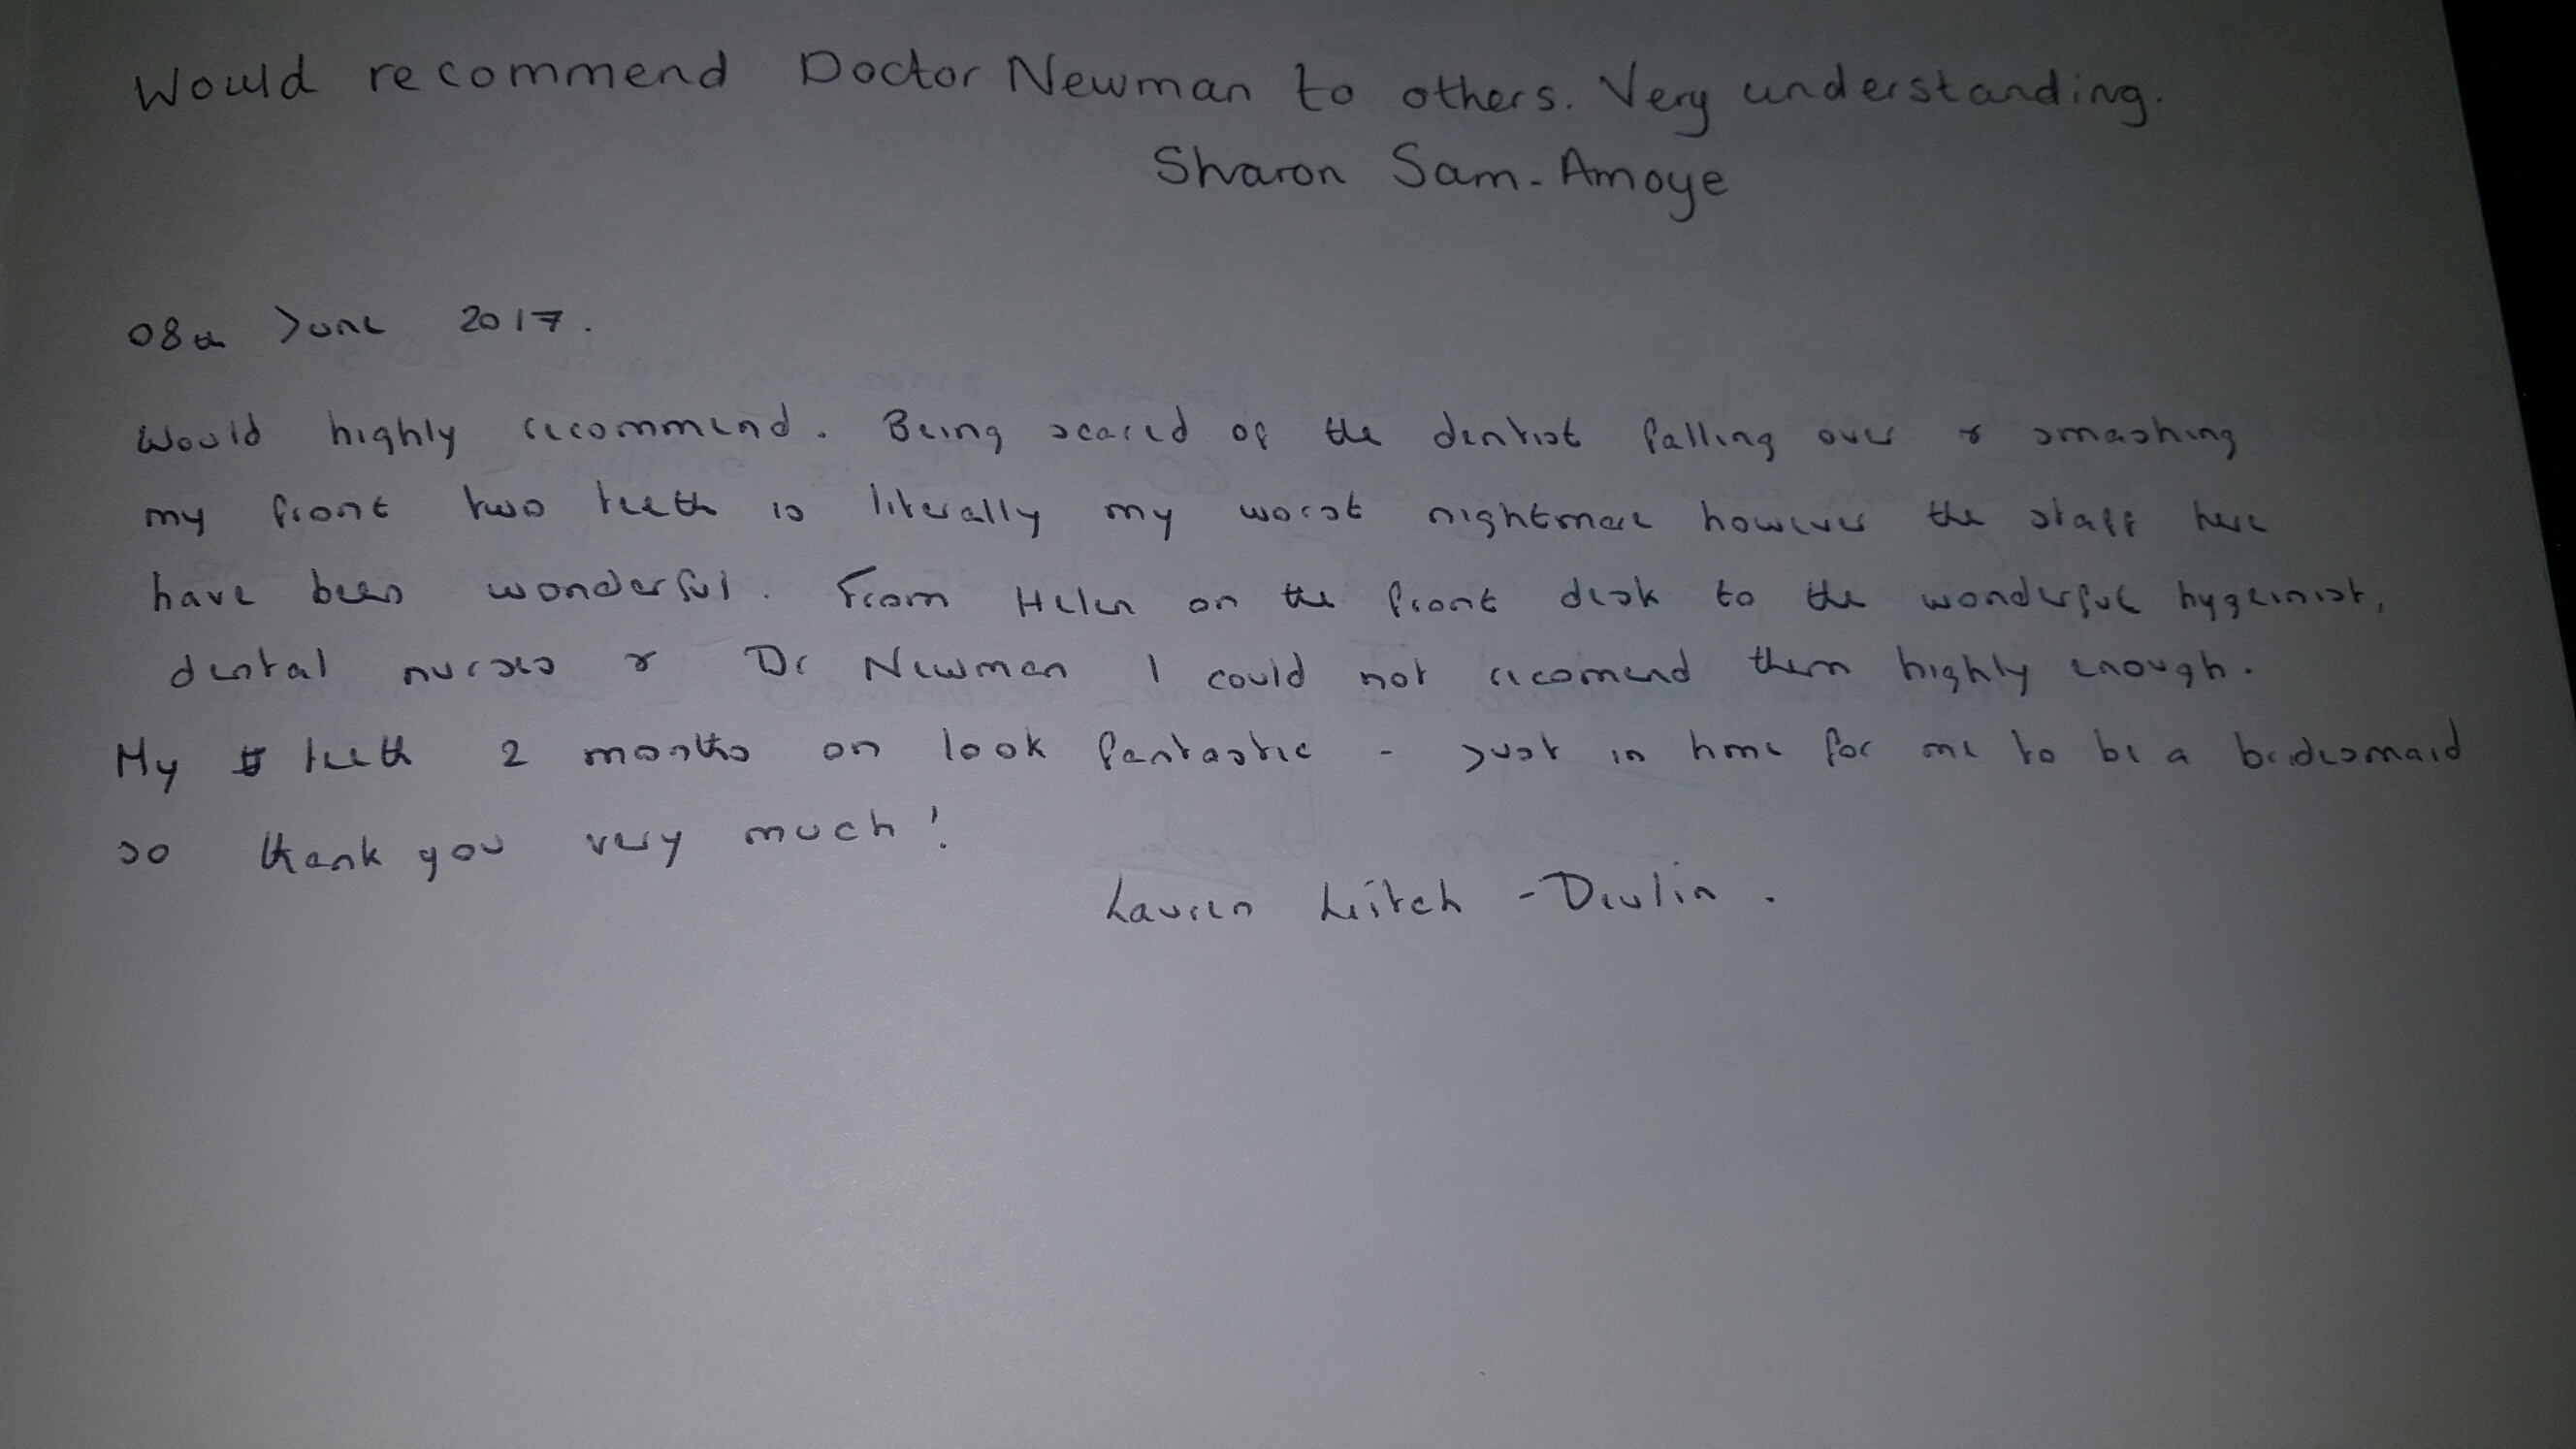 Would recommend Doctor Newman to others. Very understanding.
Sharon Sam-Amoye
08th June 2017.
Would highly recommend. Being scared of the dentist falling over & smashing
my front two teeth is literally my worst nightmare however the staff here
have been wonderful. From Helen on the front desk to the wonderful hygeinist,
dental nurses & Dr Newman I could not recomend them highly enough.
My teeth 2 months on look fantastic - just in time for me to be a bridesmaid
so thank you very much!
Lauren Leitch - Devlin.